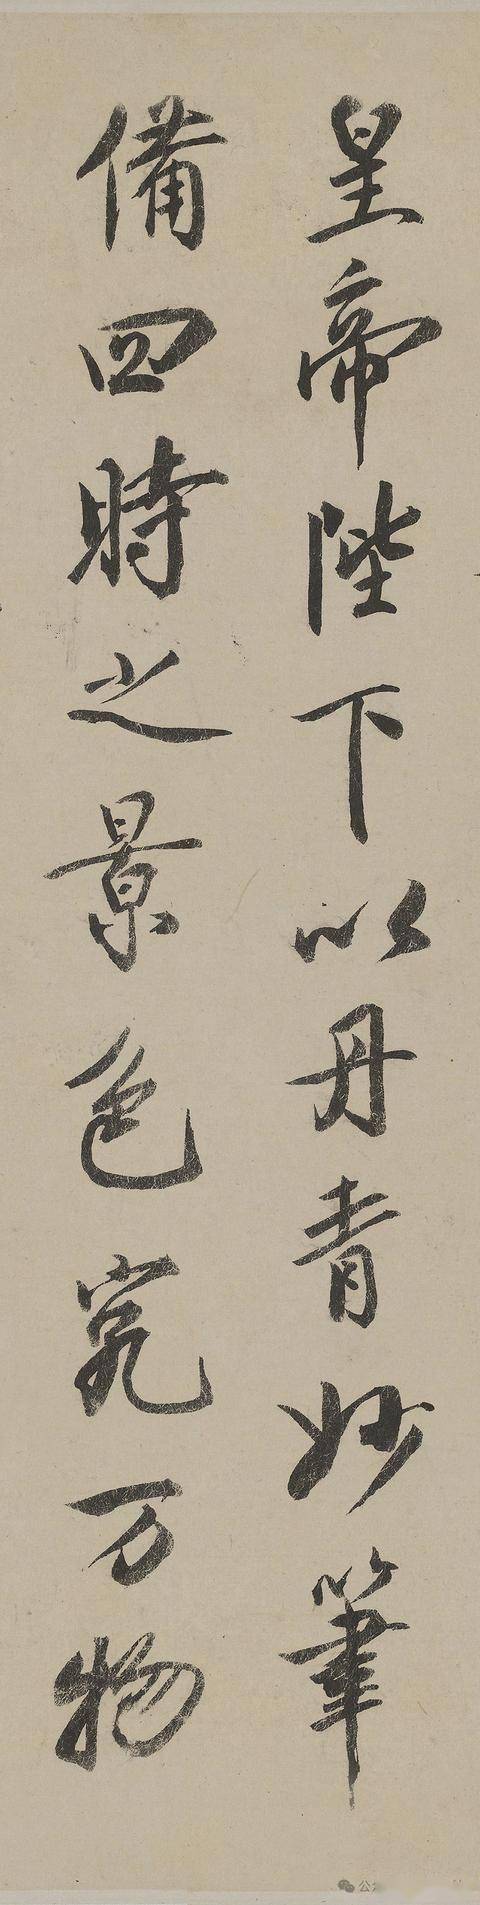 皇帝陛下以丹青妙筆
備四時之景色究万物
公